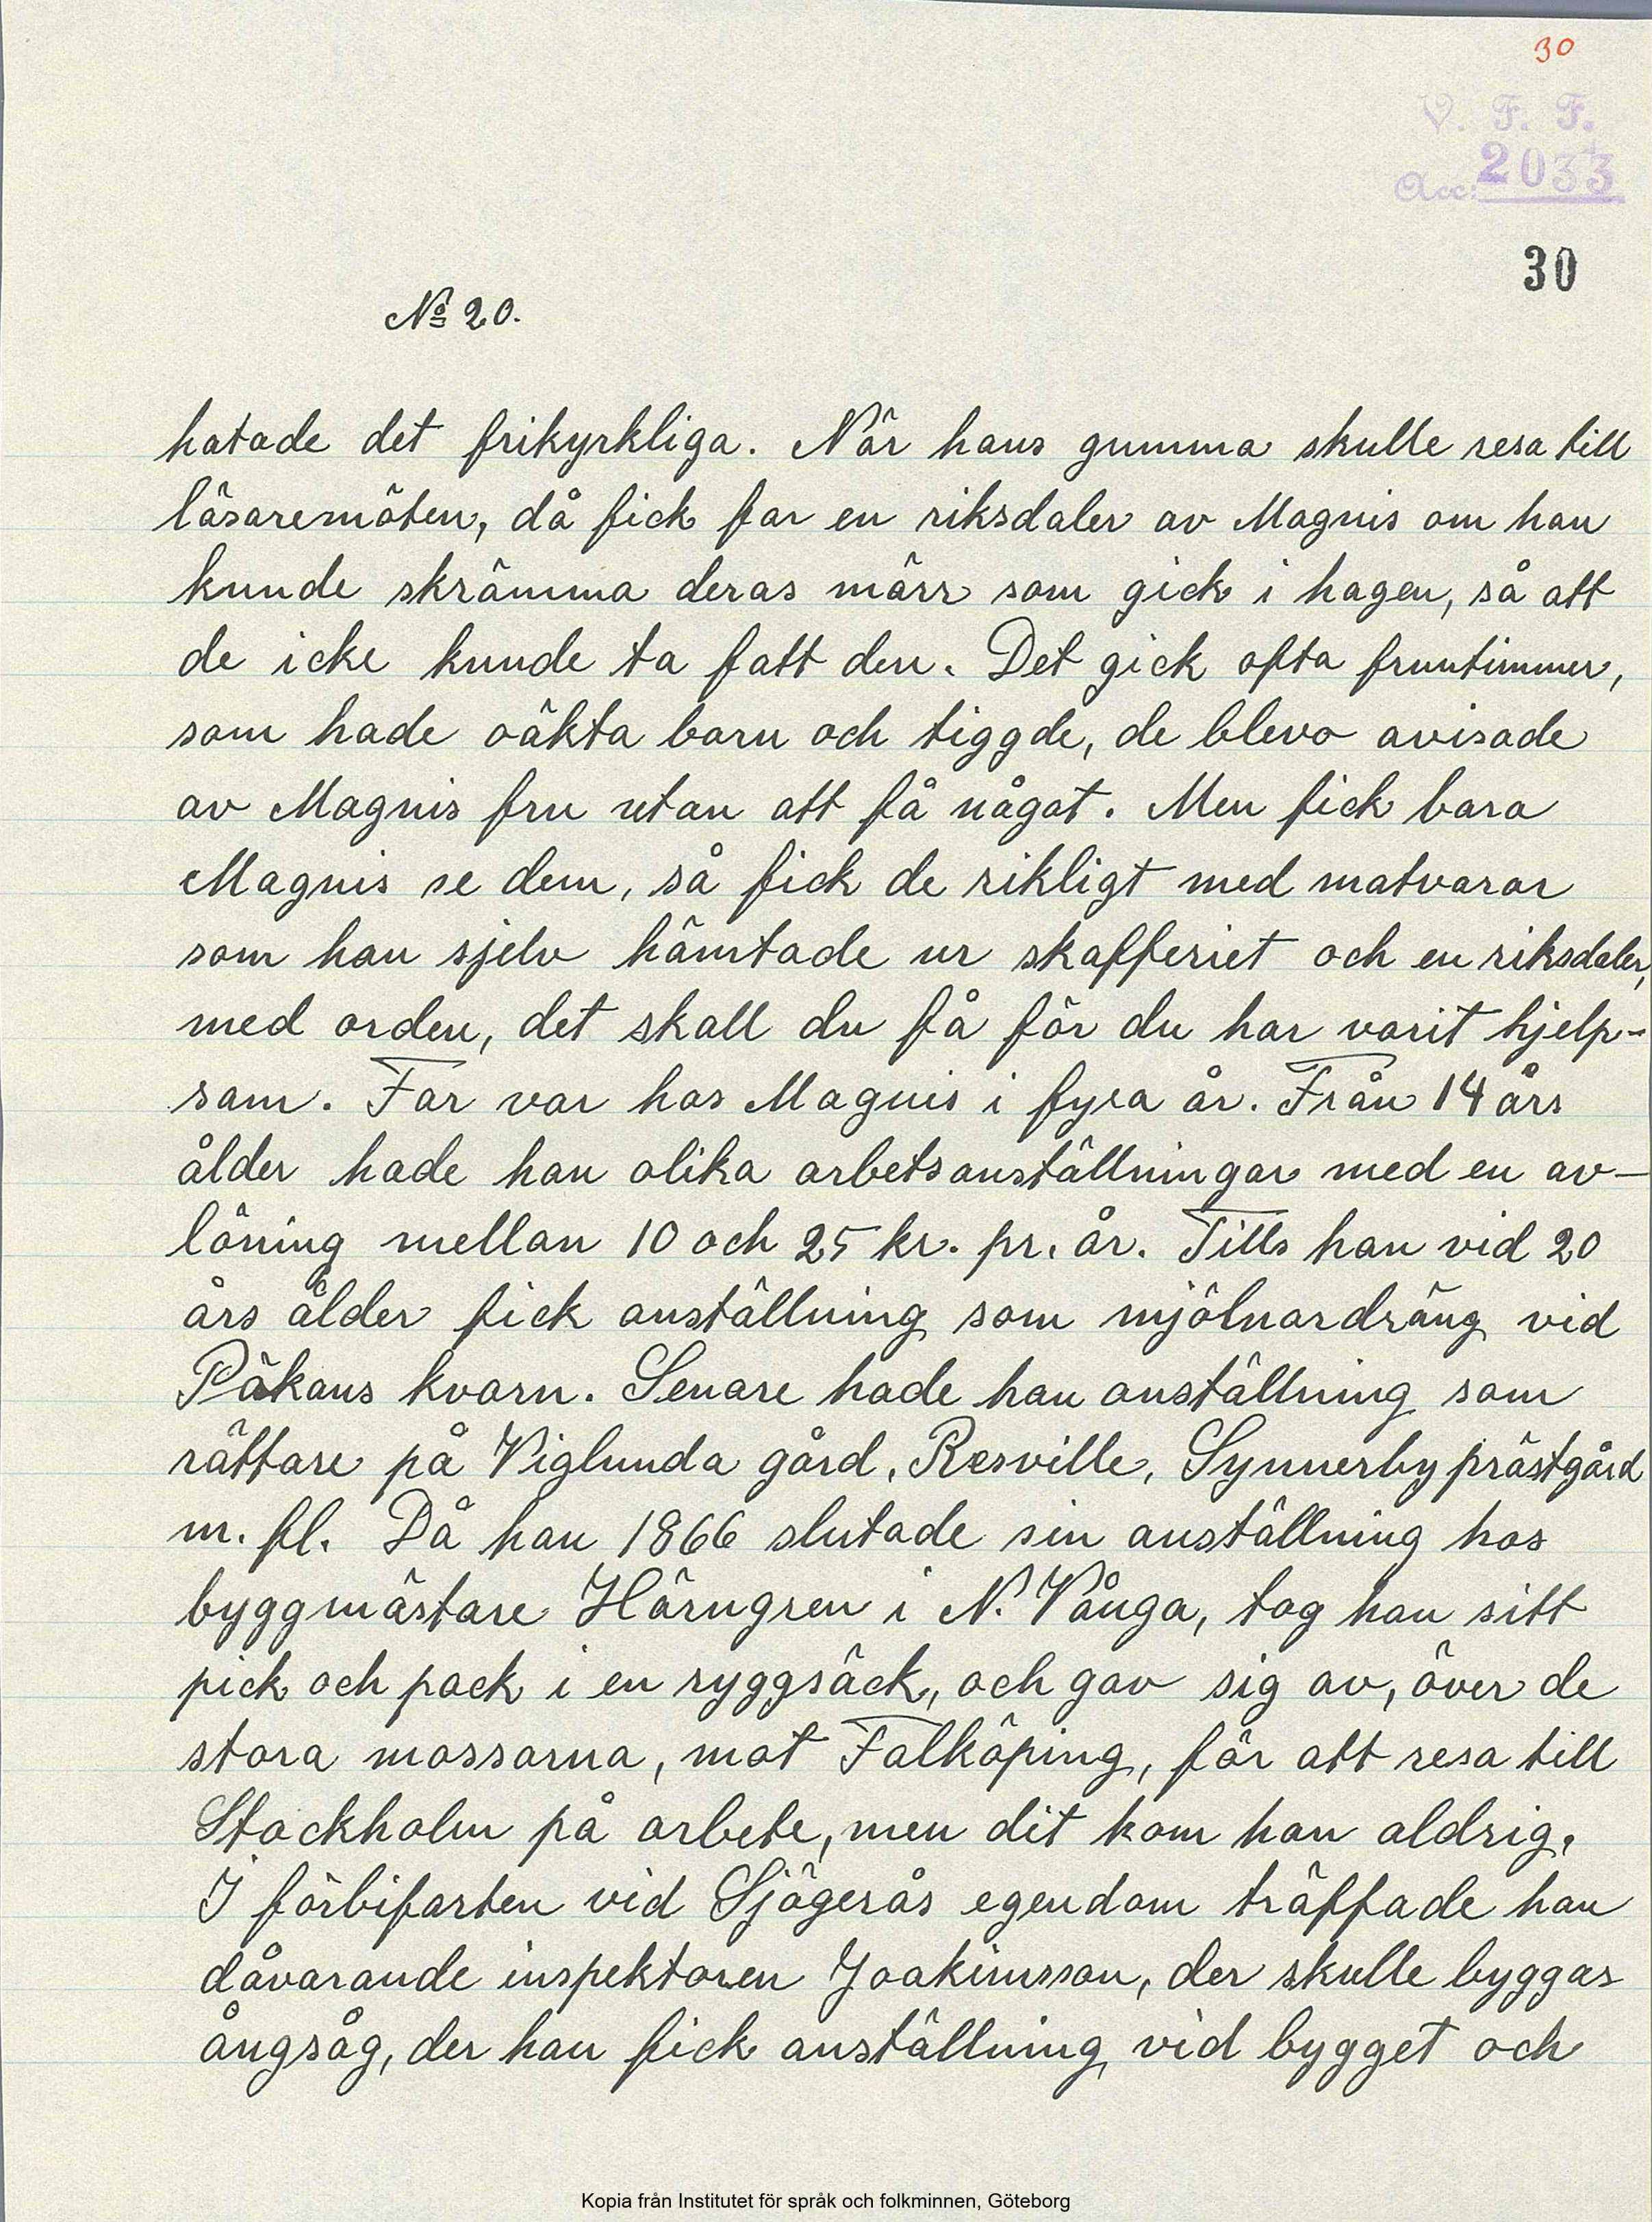 30
V. F. F.
Acc: 2033
30
No 20.
hatade det frikyrkliga. När hans gumma skulle resa till
läsaremöten, då fick far en riksdaler av Magnis om han
kunde skrämma deras märr som gick i hagen, så att
de icke kunde ta fatt den. Det gick ofta fruntimmer,
som hade oäkta barn och tiggde, de blevo avisade
av Magnis fru utan att få något. Men fick bara
Magnis se dem, så fick de rikligt med matvaror
som han sjelv hämtade ur skafferiet och en riksdaler,
med orden, det skall du få för du har varit hjelp-
sam. Far var hos Magnis i fyra år. Från 14 års
ålder hade han olika arbetsanställningar med en av-
löning mellan 10 och 25 kr. pr. år. Tills han vid 20
års ålder fick anställning som mjölnardräng vid
Påkans kvarn. Senare hade han anställning som
rättare på Viglunda gård, Resville, Synnerby prästgård
m. fl. Då han 1866 slutade sin anställning hos
byggmästare Härngren i N. Vånga, tog han sitt
pick och pack i en ryggsäck, och gav sig av, över de
stora mossarna, mot Falköping, för att resa till
Stockholm på arbete, men dit kom han aldrig.
I förbifarten vid Sjögerås egendom träffade han
dåvarande inspektoren Joakimsson, der skulle byggas
ångsåg, der han fick anställning vid bygget och
Kopia från Institutet för språk och folkminnen, Göteborg